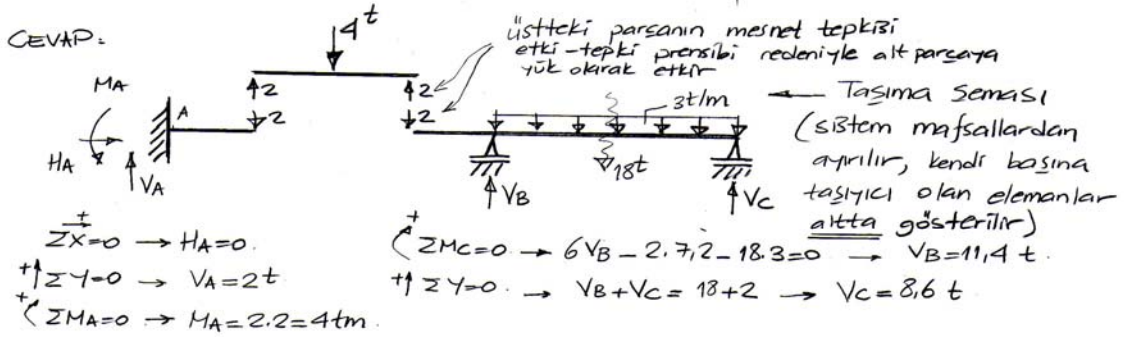 CEVAP:
4t
üstteki parçanın mesnet tepkisi
etki-tepki prensibi nedeniyle alt parçaya
yük olarak etkir
MA
A
2
2
2
2
3t/m
← Taşıma şeması
(sistem mafsallardan
ayrılır, kendi başına
taşıyıcı olan elemanlar
altta gösterilir)
HA
VA
VB
18t
VC
ΣX=0 → HA=0.
+↑ΣY=0 → VA=2t.
ΣMA=0 → MA=2.2=4tm.
ΣMC=0 → 6VB-2.7,2-18.3=0 → VB=11,4 t.
+↑ΣY=0. → VB+VC=18+2 → VC=8,6 t